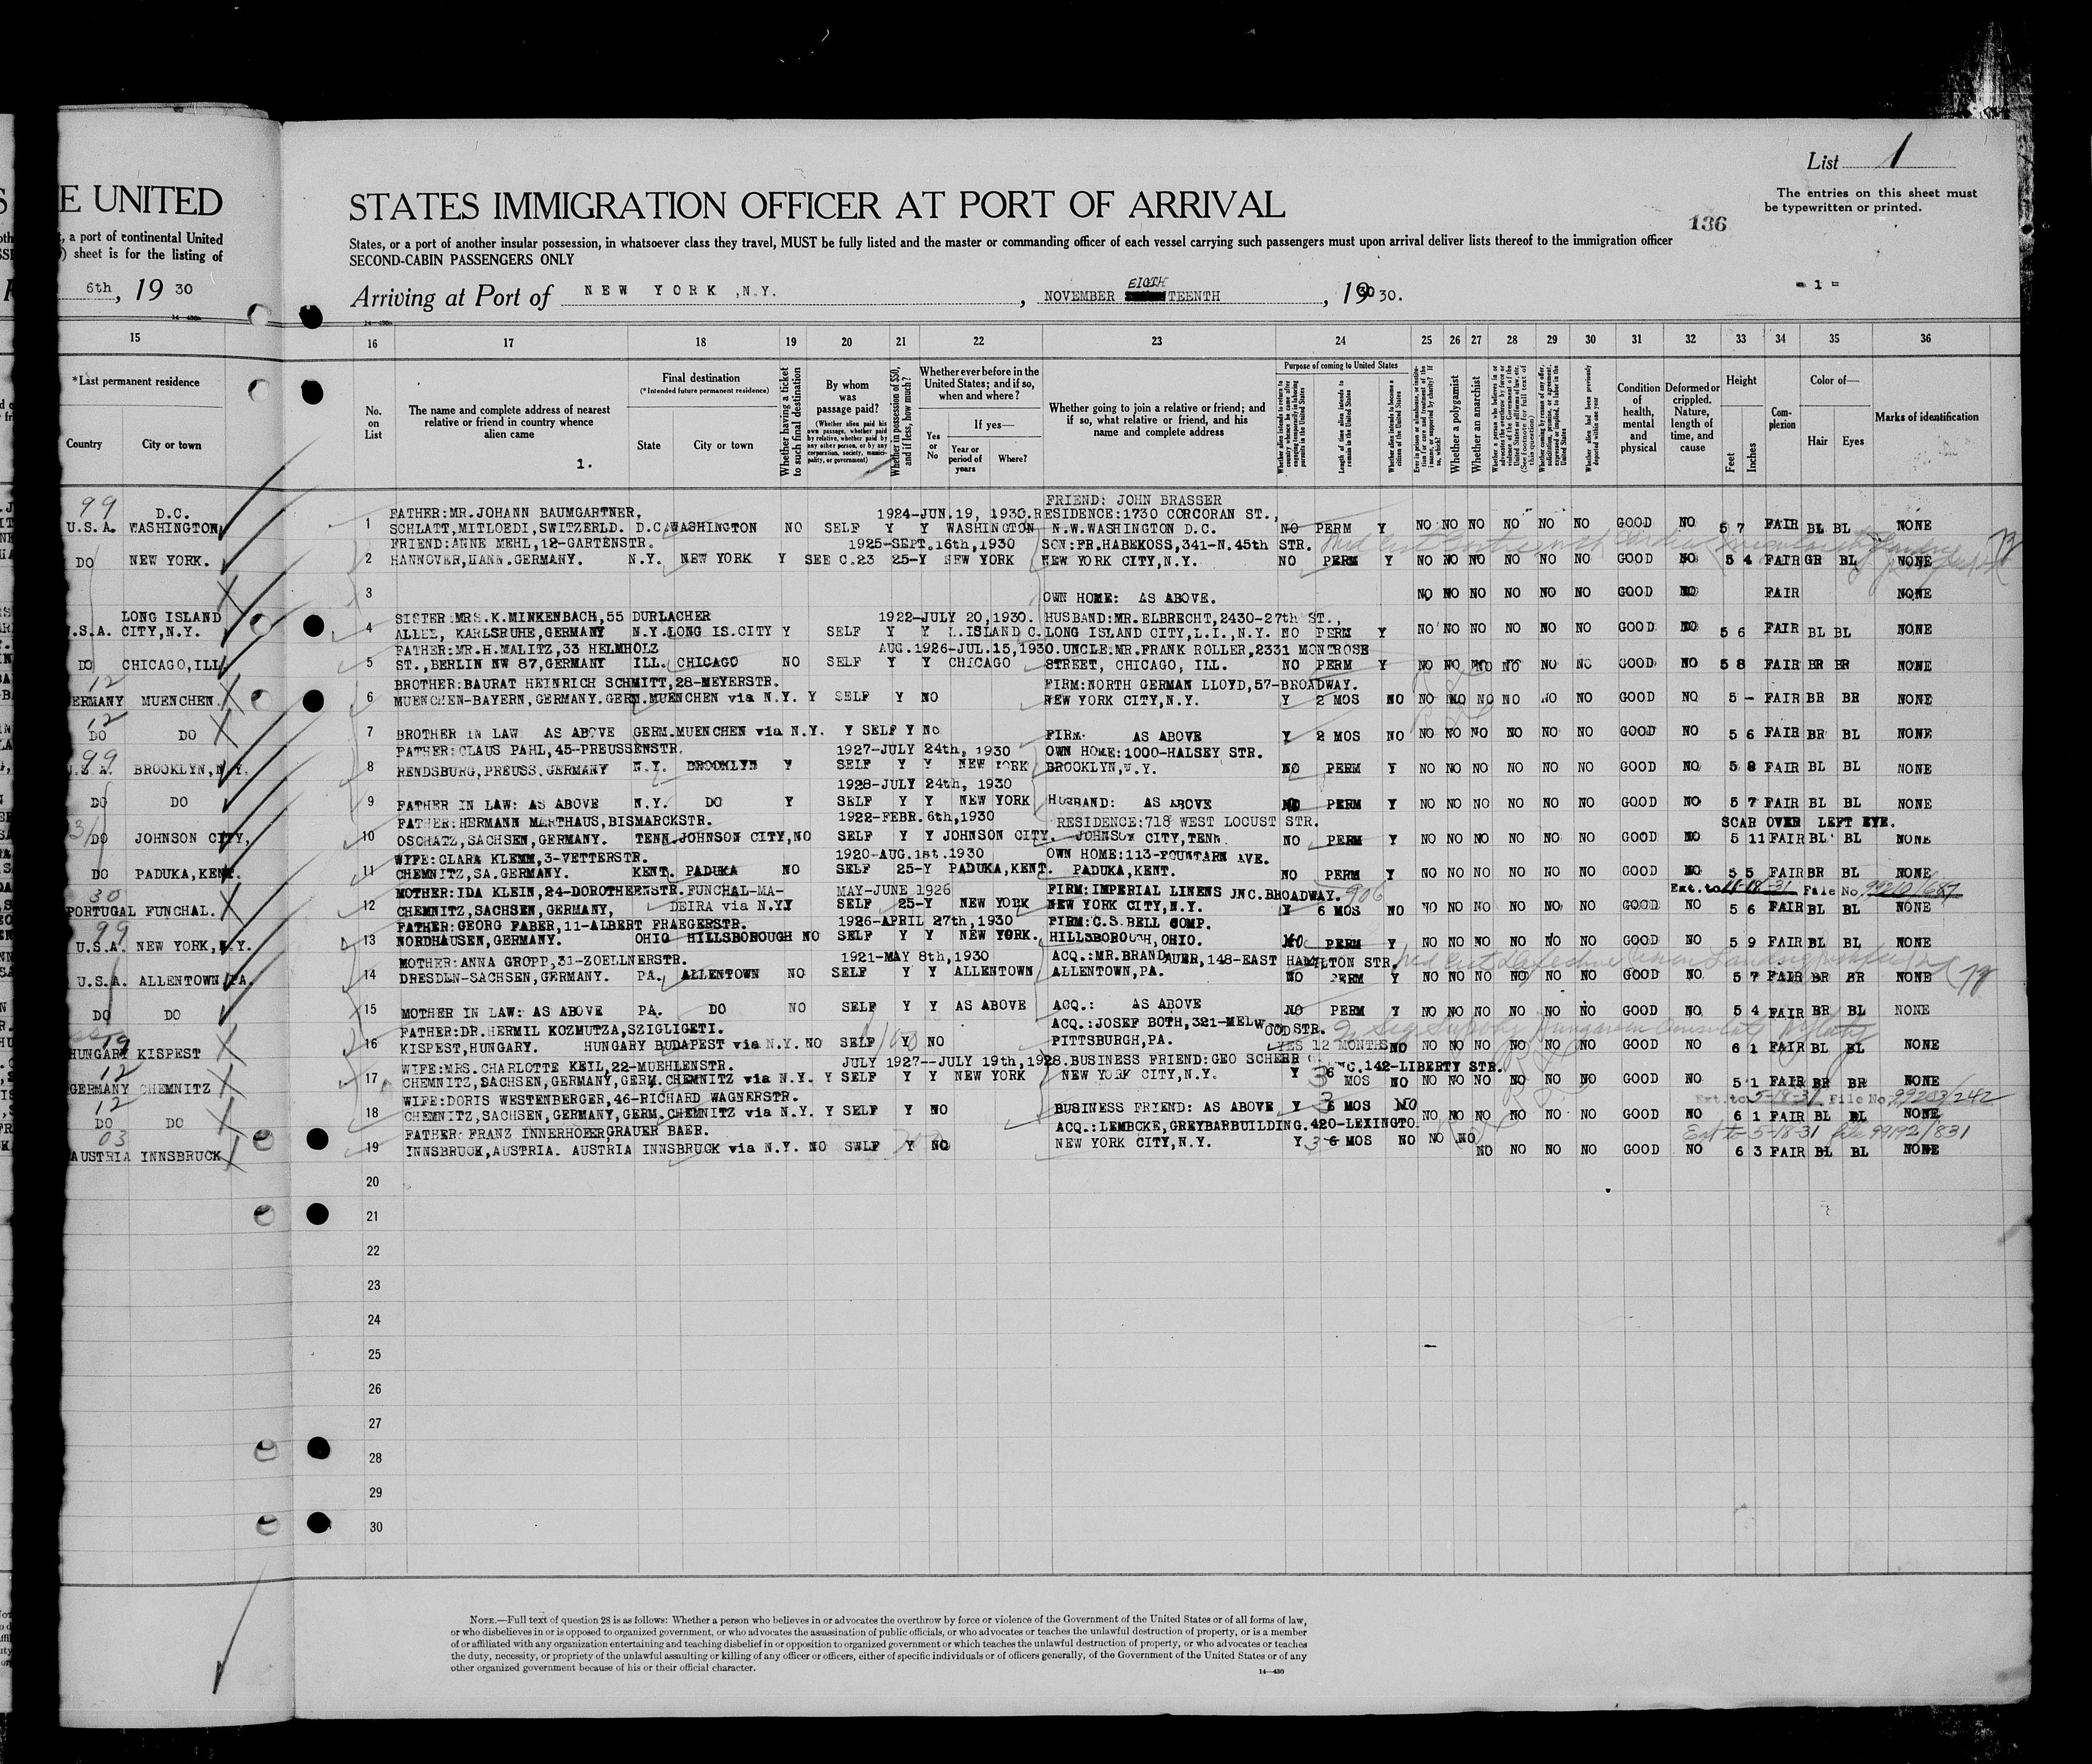 List 1
The entries on this sheet must
be typewritten or printed.
E UNITED
STATES IMMIGRATION OFFICER AT PORT OF ARRIVAL
136
, a port of continental United
) sheet is for the listing of
States, or a port of another insular possession, in whatsoever class they travel, MUST be fully listed and the master or commanding officer of each vessel carrying such passengers must upon arrival deliver lists thereof to the immigration officer
SECOND-CABIN PASSENGERS ONLY
6th, 19 30
Arriving at Port of NEW YORK ,N.Y. , NOVEMBER EIGTH TEENTH , 19 30.
= 1 =
15 16 17 18 19 20 21 22 23 24 25 26 27 28 29 30 31 32 33 34 35 36
*Last permanent residence
Country City or town
No. on List
The name and complete address of nearest
relative or friend in country whence
alien came
1.
Final destination
(*Intended future permanent residence)
State City or town
Whether having a ticket to such final destination
By whom was passage paid?
(Whether alien paid his own passage, whether paid by relative, whether paid by any other person, or by any corporation, society, municipality, or government)
Whether in possession of $50, and if less, how much?
Whether ever before in the United States; and if so, when and where?
Yes or No
If yes—
Year or period of years Where?
Whether going to join a relative or friend; and
if so, what relative or friend, and his
name and complete address
Purpose of coming to United States
Length of time alien intends to remain in the United States
Whether alien intends to become a citizen of the United States
Whether a polygamist
Whether an anarchist
Condition of health, mental and physical
Deformed or crippled. Nature, length of time, and cause
Height
Feet Inches
Complexion
Color of—
Hair Eyes
Marks of identification
99 D.C.
U.S.A. WASHINGTON
1 FATHER:MR.JOHANN BAUMGARTNER, 1924-JUN.19, 1930. FRIEND: JOHN BRASSER RESIDENCE:1730 CORCORAN ST.,
SCHLATT,MITLOEDI,SWITZERLD. D.C. WASHINGTON NO SELF Y Y WASHINGTON N.W.WASHINGTON D.C. NO PERM Y NO NO NO NO NO NO GOOD NO 5 7 FAIR BL BL NONE
DO NEW YORK.
2 FRIEND:ANNE MEHL,12-GARTENSTR. 1925-SEPT.16th,1930 SON:FR.HABEKOSS,341-N.45th STR.
HANNOVER,HANN.GERMANY. N.Y. NEW YORK Y SEE C.23 25-Y NEW YORK NEW YORK CITY,N.Y. NO PERM Y NO NO NO NO NO NO GOOD NO 5 4 FAIR GR BL NONE
3 OWN HOME: AS ABOVE. NO NO NO NO NO NO GOOD NO FAIR NONE
LONG ISLAND
.S.A. CITY,N.Y.
4 SISTER:MRS.K.MINKENBACH,55 DURLACHER 1922-JULY 20,1930. HUSBAND:MR.ELBRECHT,2430-27th ST.,
ALLEE, KARLSRUHE,GERMANY N.Y. LONG IS.CITY Y SELF Y Y L.ISLAND C. LONG ISLAND CITY,L.I.,N.Y. NO PERM Y NO NO NO NO NO NO GOOD NO 5 6 FAIR BL BL NONE
DO CHICAGO,ILL
5 FATHER:MR.H.MALITZ,33 HELMHOLZ AUG.1926-JUL.15,1930. UNCLE:MR.FRANK ROLLER,2331 MONTROSE
ST.,BERLIN NW 87,GERMANY ILL. CHICAGO NO SELF Y Y CHICAGO STREET, CHICAGO, ILL. NO PERM Y NO NO NO NO NO NO GOOD NO 5 8 FAIR BR BR NONE
12
ERMANY MUENCHEN.
6 BROTHER:BAURAT HEINRICH SCHMITT,28-MEYERSTR. FIRM:NORTH GERMAN LLOYD,57-BROADWAY.
MUENCHEN-BAYERN,GERMANY. GERM.MUENCHEN via N.Y. Y SELF Y NO NEW YORK CITY,N.Y. Y 2 MOS NO NO NO NO NO NO NO GOOD NO 5 - FAIR BR BR NONE
12
DO DO
7 BROTHER IN LAW AS ABOVE GERM.MUENCHEN via N.Y. Y SELF Y NO FIRM AS ABOVE Y 2 MOS NO NO NO NO NO NO NO GOOD NO 5 6 FAIR BR BL NONE
99
U.S.A. BROOKLYN,N.Y.
8 FATHER:CLAUS PAHL,45-PREUSSENSTR. 1927-JULY 24th, 1930 OWN HOME:1000-HALSEY STR.
RENDSBURG,PREUSS.GERMANY N.Y. BROOKLYN Y SELF Y Y NEW YORK BROOKLYN,N.Y. NO PERM Y NO NO NO NO NO NO GOOD NO 5 8 FAIR BL BL NONE
DO DO
9 1928-JULY 24th, 1930
FATHER IN LAW: AS ABOVE N.Y. DO Y SELF Y Y NEW YORK HUSBAND: AS ABOVE NO PERM Y NO NO NO NO NO NO GOOD NO 5 7 FAIR BL BL NONE
DO JOHNSON CITY,
10 FATHER:HERMANN MARTHAUS,BISMARCKSTR. 1922-FEBR.6th,1930 RESIDENCE:718 WEST LOCUST STR. SCAR OVER LEFT EYE.
OSCHATZ,SACHSEN,GERMANY. TENN.JOHNSON CITY, NO SELF Y Y JOHNSON CITY. JOHNSON CITY,TENN. NO PERM Y NO NO NO NO NO NO GOOD NO 5 11 FAIR BL BL NONE
DO PADUKA,KENT.
11 WIFE:CLARA KLEMM,3-VETTERSTR. 1920-AUG.1st.1930 OWN HOME:113-FOUNTAIN AVE.
CHEMNITZ,SA.GERMANY. KENT. PADUKA NO SELF 25-Y PADUKA,KENT. PADUKA,KENT. NO PERM Y NO NO NO NO NO NO GOOD NO 5 5 FAIR BR BL NONE
30
PORTUGAL FUNCHAL.
12 MOTHER:IDA KLEIN,24-DOROTHEENSTR. FUNCHAL-MA- MAY-JUNE 1926 FIRM:IMPERIAL LINENS JNC.BROADWAY. 906 Ext. to 11-18-31 File No.
CHEMNITZ,SACHSEN,GERMANY, DEIRA via N.Y. Y SELF 25-Y NEW YORK NEW YORK CITY,N.Y. Y 6 MOS NO NO NO NO NO NO NO GOOD NO 5 6 FAIR BL BL NONE
99
U.S.A. NEW YORK,N.Y.
13 FATHER:GEORG FABER,11-ALBERT FRAEGERSTR. 1926-APRIL 27th,1930 FIRM:C.S.BELL COMP.
NORDHAUSEN,GERMANY. OHIO HILLSBOROUGH NO SELF Y Y NEW YORK. HILLSBOROUGH,OHIO. NO PERM Y NO NO NO NO NO NO GOOD NO 5 9 FAIR BL BL NONE
U.S.A. ALLENTOWN,PA.
14 MOTHER:ANNA GROPP,31-ZOELLNERSTR. 1921-MAY 8th,1930 ACQ.:MR.BRANDAUER,148-EAST HAMILTON STR.
DRESDEN-SACHSEN,GERMANY. PA. ALLENTOWN NO SELF Y Y ALLENTOWN ALLENTOWN,PA. NO PERM Y NO NO NO NO NO NO GOOD NO 5 7 FAIR BR BR NONE
DO DO
15 MOTHER IN LAW: AS ABOVE PA. DO NO SELF Y Y AS ABOVE ACQ.: AS ABOVE NO PERM Y NO NO NO NO NO NO GOOD NO 5 4 FAIR BR BL NONE
HUNGARY KISPEST
16 FATHER:DR.HERMIL KOZMUTZA,SZIGLIGETI. ACQ.:JOSEF BOTH,321-MELWOOD STR.
KISPEST,HUNGARY. HUNGARY BUDAPEST via N.Y. NO SELF Y NO PITTSBURGH,PA. YES 12 MONTHS NO NO NO NO NO NO NO GOOD NO 6 1 FAIR BL BL NONE
12
GERMANY CHEMNITZ
17 WIFE:MRS.CHARLOTTE KEIL,22-MUEHLENSTR. JULY 1927--JULY 19th,1928. BUSINESS FRIEND:GEO SCHERR C.142-LIBERTY STR.
CHEMNITZ,SACHSEN,GERMANY, GERM.CHEMNITZ via N.Y. Y SELF Y Y NEW YORK NEW YORK CITY,N.Y. Y 3 6 MOS NO NO NO NO NO NO NO GOOD NO 5 1 FAIR BR BR NONE
12
DO DO
18 WIFE:DORIS WESTENBERGER,46-RICHARD WAGNERSTR. Ext. to 5-18-31 File No. 99203/242
CHEMNITZ,SACHSEN,GERMANY, GERM.CHEMNITZ via N.Y. Y SELF Y NO BUSINESS FRIEND: AS ABOVE Y 3 MOS NO NO NO NO NO NO NO GOOD NO 6 1 FAIR BL BL NONE
03
AUSTRIA INNSBRUCK
19 FATHER: FRANZ INNERHOFER,GRAUER BAER. ACQ.:LEMBCKE,GREYBARBUILDING.420-LEXINGTO. Ext to 5-18-31 file 99192/831
INNSBRUCK,AUSTRIA. AUSTRIA INNSBRUCK via N.Y. NO SWLF Y NO NEW YORK CITY,N.Y. Y 3 6 MOS NO NO NO NO NO NO NO GOOD NO 6 3 FAIR BL BL NONE
20
21
22
23
24
25
26
27
28
29
30
NOTE.—Full text of question 28 is as follows: Whether a person who believes in or advocates the overthrow by force or violence of the Government of the United States or of all forms of law,
or who disbelieves in or is opposed to organized government, or who advocates the assassination of public officials, or who advocates or teaches the unlawful destruction of property, or is a member
of or affiliated with any organization entertaining and teaching disbelief in or opposition to organized government or which teaches the unlawful destruction of property, or who advocates or teaches
the duty, necessity, or propriety of the unlawful assaulting or killing of any officer or officers, either of specific individuals or of officers generally, of the Government of the United States or of any
other organized government because of his or their official character.
14—430